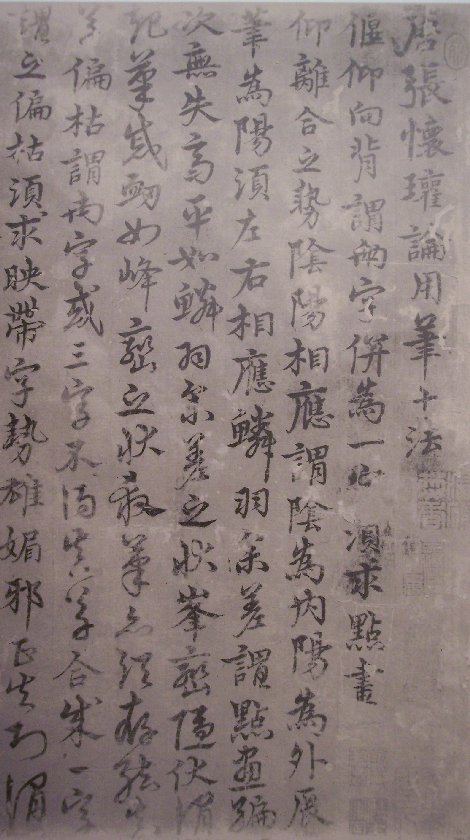 唐張懷瓘論用筆十法
偃仰向背謂兩字併為一字須求點畫
仰離合之勢陰陽相應謂陰為內陽為外展
筆為陽須左右相應鱗羽參差謂點畫編
次無失高平如鱗羽參差之狀峯巒隱伏謂
起筆或如峰巒之狀殺筆亦須存結
偏枯謂兩字或三字不得真草合成一字
謂之偏枯須求映帶字勢雄媚邪正失則謂